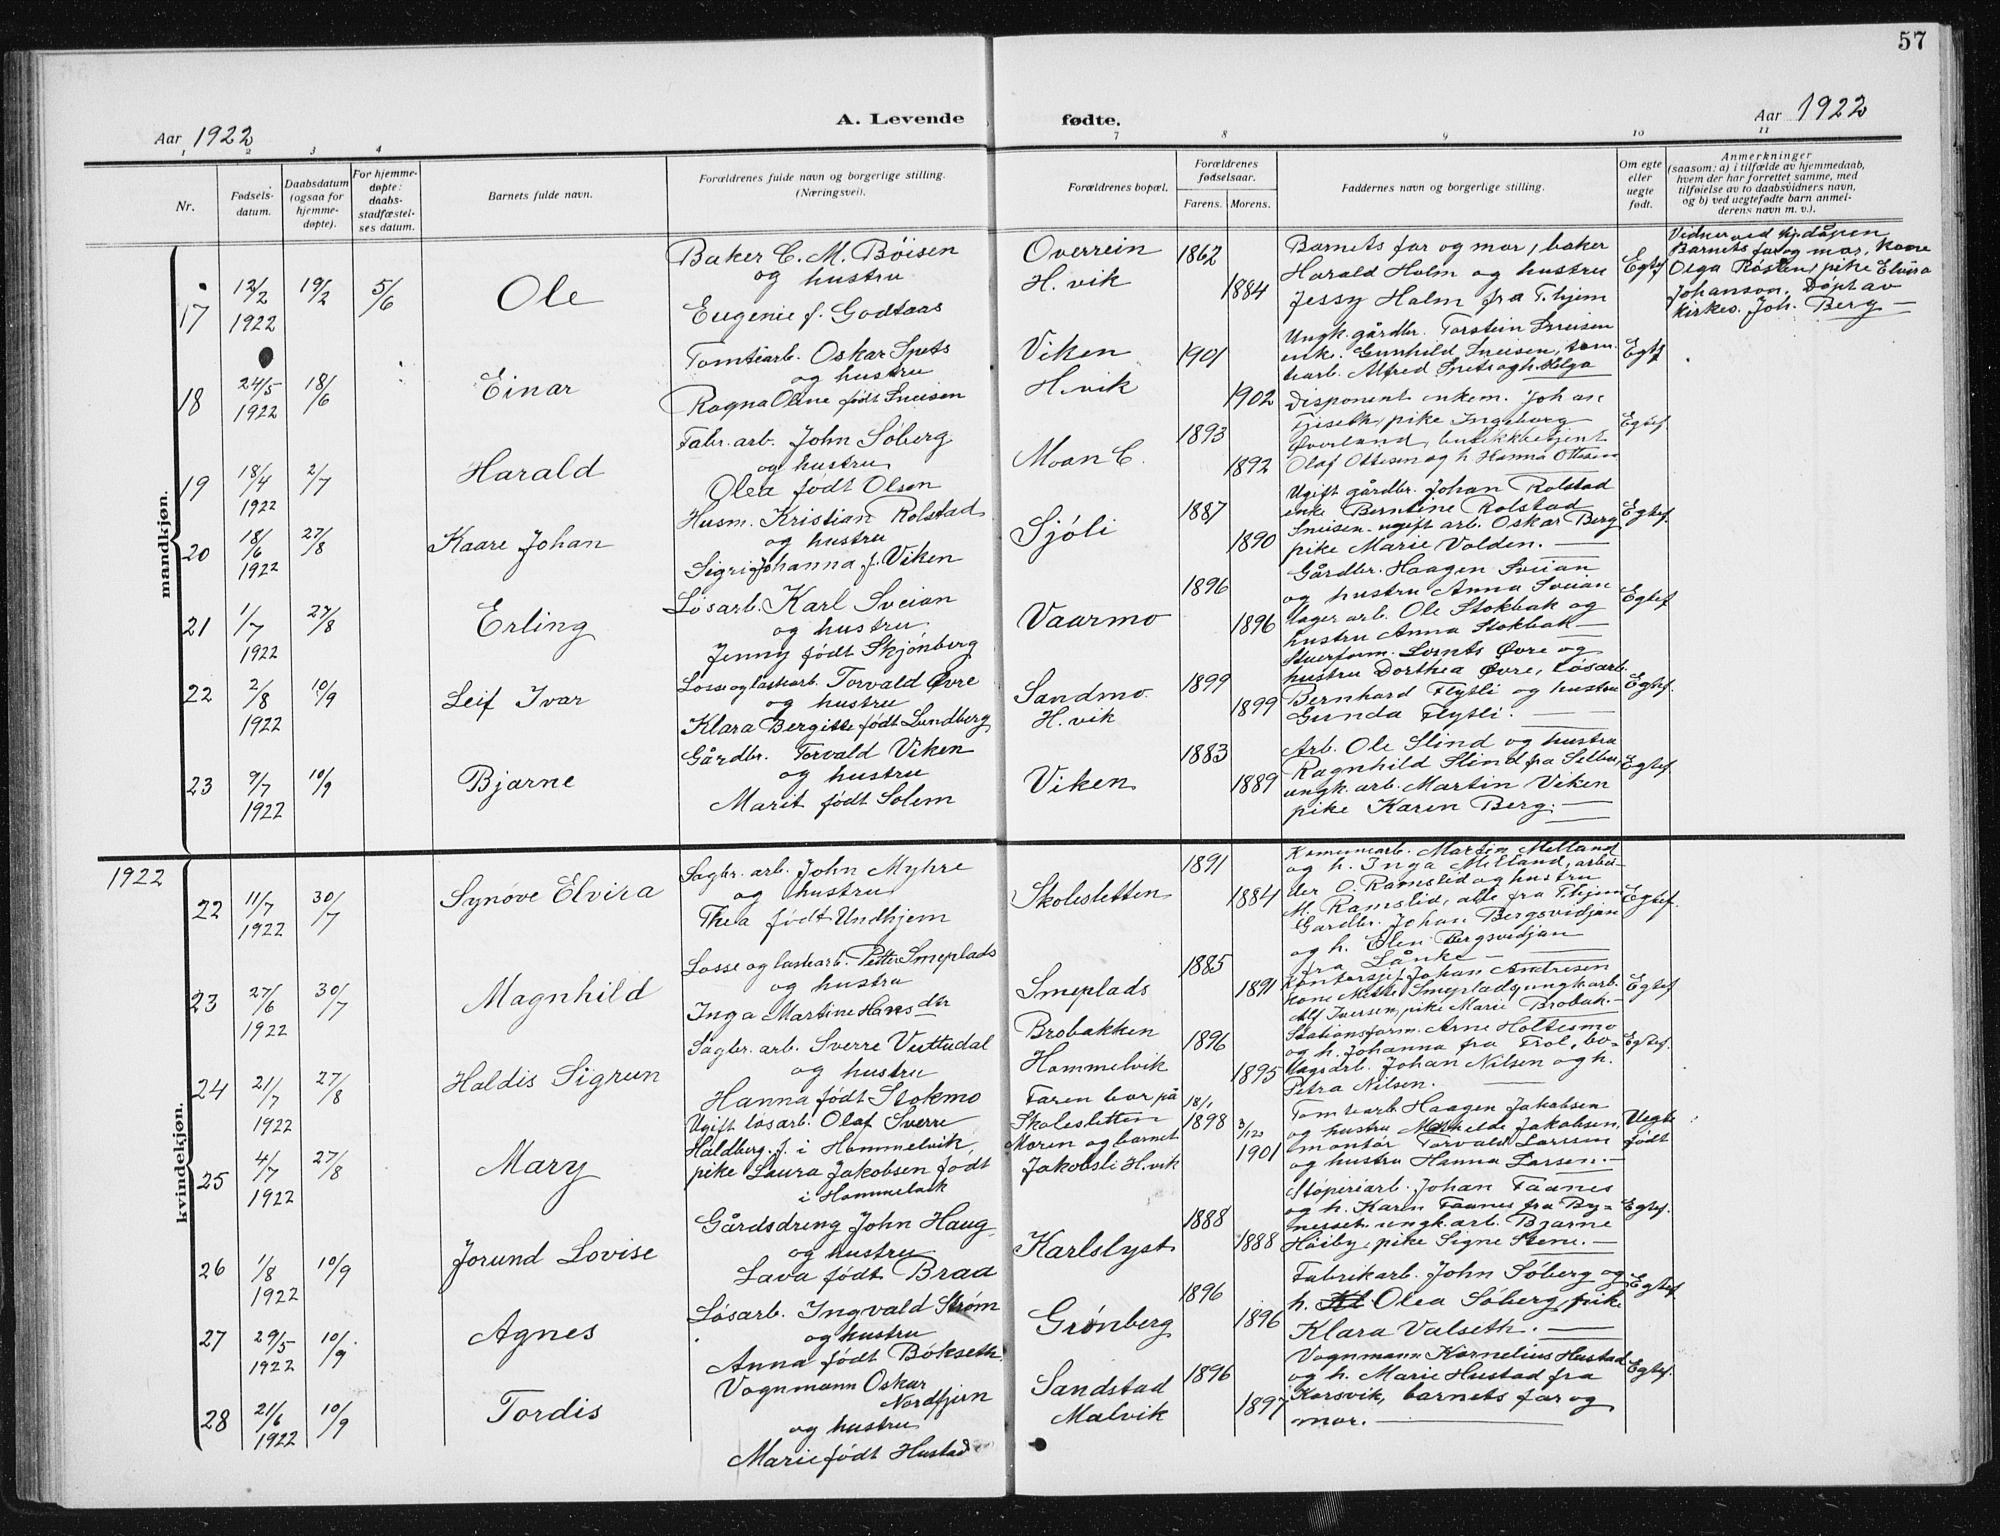 57
Aar 1922
A. Levende
fødte.
Aar 1922
1 2 3 4 7 8 9 10 11
Nr.
Fødsels-
datum.
Daabsdatum
(ogsaa for
hjemme-
døpte).
For hjemme-
døpte:
daabs-
stadfæstel-
ses datum.
Barnets fulde navn.
Forældrenes fulde navn og borgerlige stilling.
(Næringsvei).
Forældrenes bopæl.
Forældrenes
fødselsaar.
Farens. Morens.
Faddernes navn og borgerlige stilling.
Om egte
eller
uegte
født.
Anmerkninger
(saasom: a) i tilfælde av hjemmedaab,
hvem der har forrettet samme, med
tilføielse av to daabsvidners navn,
og b) ved uegtefødte barn anmel-
derens navn m. v.).
mandkjøn.
17
12/2
1922
19/2
5/6
Ole
Baker C. M. Böisen
og hustru
Eugenie f. Godtaas
Overrein
H.vik
1862
1884
Barnets far og mor, baker
Harald Holm og hustru
Jessy Holm fra T.hjem
Egtef
Vidner ved hj.dåpen
Barnets far og mor, kone
Olga Rösten, pike Elvira
Johanson. Döpt av
kirkes. Joh. Berg —
18
24/5
1922
18/6
Einar
Tomtearb. Oskar Spets
og hustru
Ragna Oline födt Sneisen
Viken
H.vik
1901
1902
Ungk. gårdbr. Torstein Sneisen
enke. Gunhild Sneisen, tom-
tearb. Alfred Snets og h. Helga
Egtf
19
18/4
1922
2/7
Harald
Fabr. arb. John Söberg
og hustru
Olea födt Olsen
Moan C.
1893
1892
Disponent enkem. Johan
pike Ingeborg
Överland, butikkbetjent
Olaf Ottesen og h. Hanna Ottesen
Egtef
20
18/6
1922
27/8
Kaare Johan
Husm. Kristian Rolstad
og hustru
Sigri Johanna f. Viken
Sjöli
1887
1890
Ugift gårdbr. Johan Rolstad
enke Berntine Rolstad
Sneisen ugift arb. Oskar Berg
pike Marie Volden. —
Egtef.
21
1/7
1922
27/8
Erling
Lösarb. Karl Sveian
og hustru
Jenny födt Skjönberg
Vaarmo
1896
1896
Gårdbr. Haagen Sveian
og hustru Anna Sveian
Lager arb. Ole Stokbak og
hustru Anna Stokbak —
Egtef
22
2/8
1922
10/9
Leif Ivar
Losse og lastearb. Torvald Øvre
og hustru
Klara Bergitte födt Lundberg
Sandmo
H.vik
1899
1899
Stuerform. Lornts Øvre og
hustru Dorthea Øvre, lösarb.
Bernhard Flytli og hustru
Gunda Flytli. —
Egtef.
23
9/7
1922
10/9
Bjarne
Gårdbr. Torvald Viken
og hustru
Marit födt Solem
Viken
1883
1889
Arb. Ole Slind og hustru
Ragnhild Slind fra Selbu,
ungk. arb. Martin Viken
pike Karen Berg. —
Egtef.
1922
kvindekjøn.
22
11/7
1922
30/7
Synöve Elvira
Sagbr. arb. John Myhre
og hustru
Thea födt Undhjem
Skolesletten
1891
1884
Komunearb. Martin Melland
og h. Inga Melland, arbei-
der O. Ramslid og hustru
M. Ramslid, alle fra Thjem
Egtef.
23
27/6
1922
30/7
Magnhild
Losse og lastearb. Petter Smeplads
og hustru
Inga Martine Hansdtr
Smeplads
1885
1891
Gardbr. Johan Bergsvidjan
og h. Elen Bergsvidjan
fra Lånke —
Kontorsjef Johan Andresen
kone Mette Smeplads, ungk. arb.
Alf Iversen, pike Marie Brobak. —
Egtef
24
21/7
1922
27/8
Haldis Sigrun
Sagbr. arb. Sverre Vuttudal
og hustru
Hanna födt Stokmo
Brobakken
Hommelvik
1896
1895
Stationsform. Arne Holtesmo
og h. Johanna fra Trol,
Johan Nilsen og h.
Petra Nilsen. —
Egtef.
25
4/7
1922
27/8
Mary
Ugift lösarb. Olaf Sverre
Haldberg, f. i Hommelvik,
pike Laura Jakobsen födt
i Hommelvik
Faren bor på
Skolesletten
Moren og barnet
Jakobsli H.vik
18/1
1898
3/12
1901
Tomtearb. Haagen Jakobsen
og hustru Mathilde Jakobsen,
montör Torvald Larsen
og hustru Hanna Larsen. —
Uegte
födt
26
1/8
1922
10/9
Jorund Lovise
Gårdsdreng John Haug
og hustru
Lava födt Brad
Karlslyst
1888
1888
Stöperiarb. Johan Faanes
og h. Karen Faanes fra By-
nesset. ungk. arb. Bjarne
Höiby, pike Signe Stene. —
Egtef.
27
29/5
1922
10/9
Agnes
Lösarb. Ingvald Ström
og hustru
Anna födt Bökseth.
Grönberg
1896
1896
Fabrikarb. John Söberg og
h. Olea Söberg, pike
Klara Valseth. —
Egtef
28
21/6
1922
10/9
Tordis
Vognmann Oskar
Nordfjern
og hustru
Marie födt Hustad
Sandstad
Malvik
1896
1897
Vognmann Kornelius Hustad
og h. Marie Hustad fra
Korsvik, barnets far og
mor. —
Egtef.